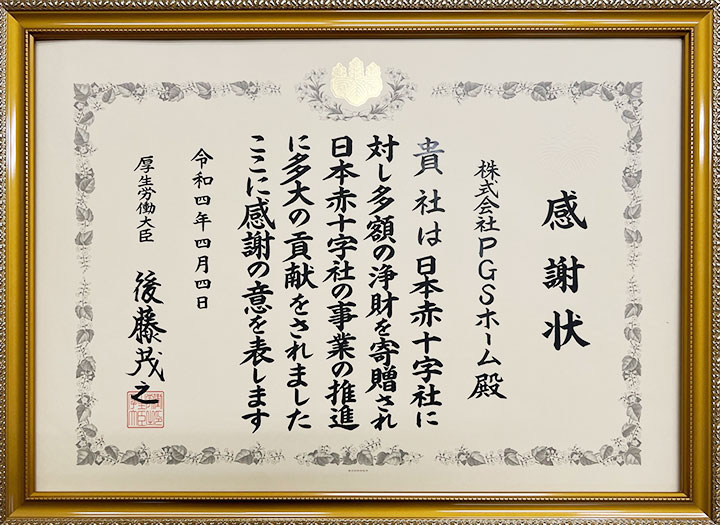 感謝状
株式会社PGSホーム殿
貴社は日本赤十字社に
対し多額の浄財を寄贈され
日本赤十字社の事業の推進
に多大の貢献をされました
ここに感謝の意を表します
令和四年四月四日
厚生労働大臣 後藤茂之